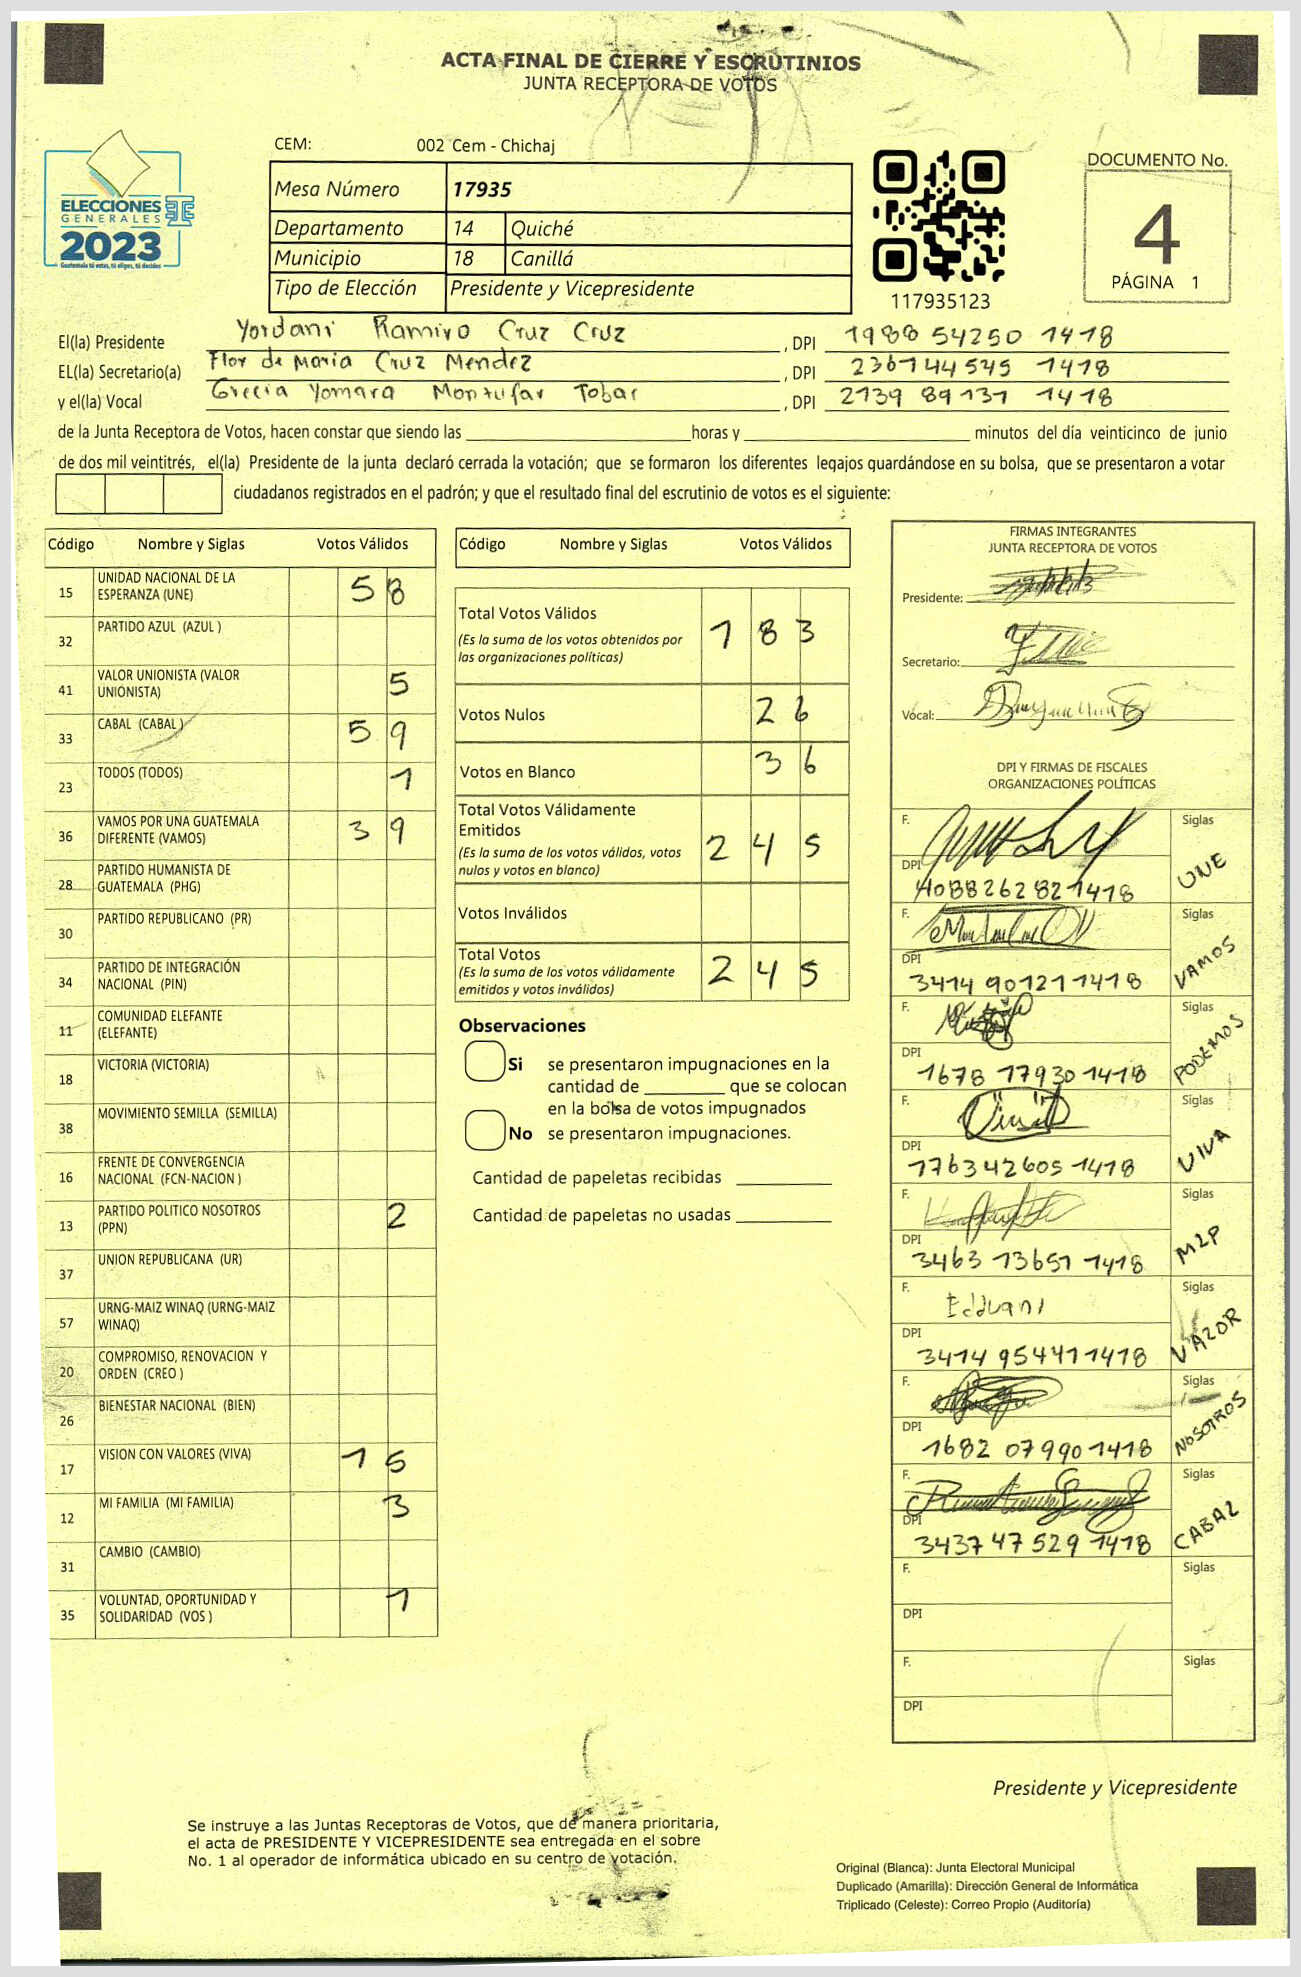 ACTA FINAL DE CIERRE Y ESCRUTINIOS
JUNTA RECEPTORA DE VOTOS
ELECCIONES
GENERALES
2023
Guatemala tú votas, tú eliges, tú decides
CEM: 002 Cem - Chichaj
Mesa Número 17935
Departamento 14 Quiché
Municipio 18 Canillá
Tipo de Elección Presidente y Vicepresidente
117935123
DOCUMENTO No.
4
PÁGINA 1
El(la) Presidente Yordani Ramiro Cruz Cruz , DPI 1988 54250 1418
EL(la) Secretario(a) Flor de Maria Cruz Mendez , DPI 2367 44545 1418
y el(la) Vocal Grecia Yomara Montufar Tobar , DPI 2739 89131 1418
de la Junta Receptora de Votos, hacen constar que siendo las horas y minutos del día veinticinco de junio
de dos mil veintitrés, el(la) Presidente de la junta declaró cerrada la votación; que se formaron los diferentes legajos guardándose en su bolsa, que se presentaron a votar
ciudadanos registrados en el padrón; y que el resultado final del escrutinio de votos es el siguiente:
Código Nombre y Siglas Votos Válidos
15 UNIDAD NACIONAL DE LA ESPERANZA (UNE) 58
32 PARTIDO AZUL (AZUL )
41 VALOR UNIONISTA (VALOR UNIONISTA) 5
33 CABAL (CABAL ) 59
23 TODOS (TODOS) 1
36 VAMOS POR UNA GUATEMALA DIFERENTE (VAMOS) 39
28 PARTIDO HUMANISTA DE GUATEMALA (PHG)
30 PARTIDO REPUBLICANO (PR)
34 PARTIDO DE INTEGRACIÓN NACIONAL (PIN)
11 COMUNIDAD ELEFANTE (ELEFANTE)
18 VICTORIA (VICTORIA)
38 MOVIMIENTO SEMILLA (SEMILLA)
16 FRENTE DE CONVERGENCIA NACIONAL (FCN-NACION )
13 PARTIDO POLITICO NOSOTROS (PPN) 2
37 UNION REPUBLICANA (UR)
57 URNG-MAIZ WINAQ (URNG-MAIZ WINAQ)
20 COMPROMISO, RENOVACION Y ORDEN (CREO )
26 BIENESTAR NACIONAL (BIEN)
17 VISION CON VALORES (VIVA) 15
12 MI FAMILIA (MI FAMILIA) 3
31 CAMBIO (CAMBIO)
35 VOLUNTAD, OPORTUNIDAD Y SOLIDARIDAD (VOS ) 1
Código Nombre y Siglas Votos Válidos
Total Votos Válidos 183
(Es la suma de los votos obtenidos por
las organizaciones políticas)
Votos Nulos 26
Votos en Blanco 36
Total Votos Válidamente
Emitidos 245
(Es la suma de los votos válidos, votos
nulos y votos en blanco)
Votos Inválidos
Total Votos 245
(Es la suma de los votos válidamente
emitidos y votos inválidos)
Observaciones
Si se presentaron impugnaciones en la
cantidad de que se colocan
en la bolsa de votos impugnados
No se presentaron impugnaciones.
Cantidad de papeletas recibidas
Cantidad de papeletas no usadas
FIRMAS INTEGRANTES
JUNTA RECEPTORA DE VOTOS
Presidente:
Secretario:
Vocal:
DPI Y FIRMAS DE FISCALES
ORGANIZACIONES POLÍTICAS
F. Siglas
DPI 4088262821418 UNE
F. Siglas
DPI 3414 901211418 VAMOS
F. Siglas
DPI 1678 179301418 PODEMOS
F. Siglas
DPI 1763426051418 VIVA
F. Siglas
DPI 3463 13651 1418 MLP
F. Edduani Siglas
DPI 3414 954411418 VALOR
F. Siglas
DPI 1682 079901418 NOSOTROS
F. Siglas
DPI 3437 47529 1418 CABAL
F. Siglas
DPI
F. Siglas
DPI
Presidente y Vicepresidente
Se instruye a las Juntas Receptoras de Votos, que de manera prioritaria,
el acta de PRESIDENTE Y VICEPRESIDENTE sea entregada en el sobre
No. 1 al operador de informática ubicado en su centro de votación.
Original (Blanca): Junta Electoral Municipal
Duplicado (Amarilla): Dirección General de Informática
Triplicado (Celeste): Correo Propio (Auditoría)